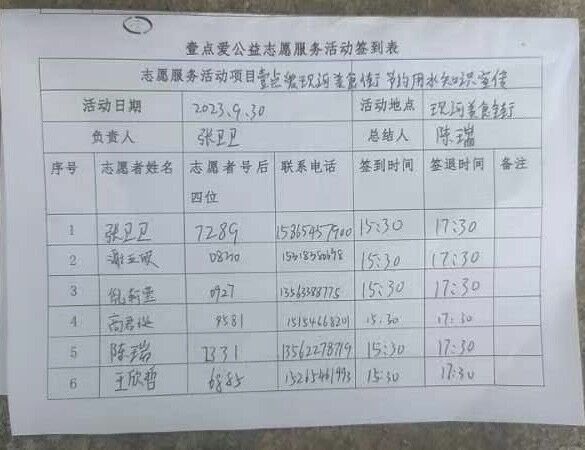 壹点爱公益志愿服务活动签到表
志愿服务活动项目 壹点爱 美食街 节约用水知识宣传
活动日期 2023.9.30 活动地点 美食街
负责人 张卫卫 总结人 陈瑞
序号 志愿者姓名 志愿者号后四位 联系电话 签到时间 签退时间 备注
1 张卫卫 7289 15865457900 15:30 17:30
2 15:30 17:30
3 0927 13563388775 15:30 17:30
4 9581 15154668201 15:30 17:30
5 陈瑞 1331 13562278719 15:30 17:30
6 王欣哲 6885 15265461993 15:30 17:30